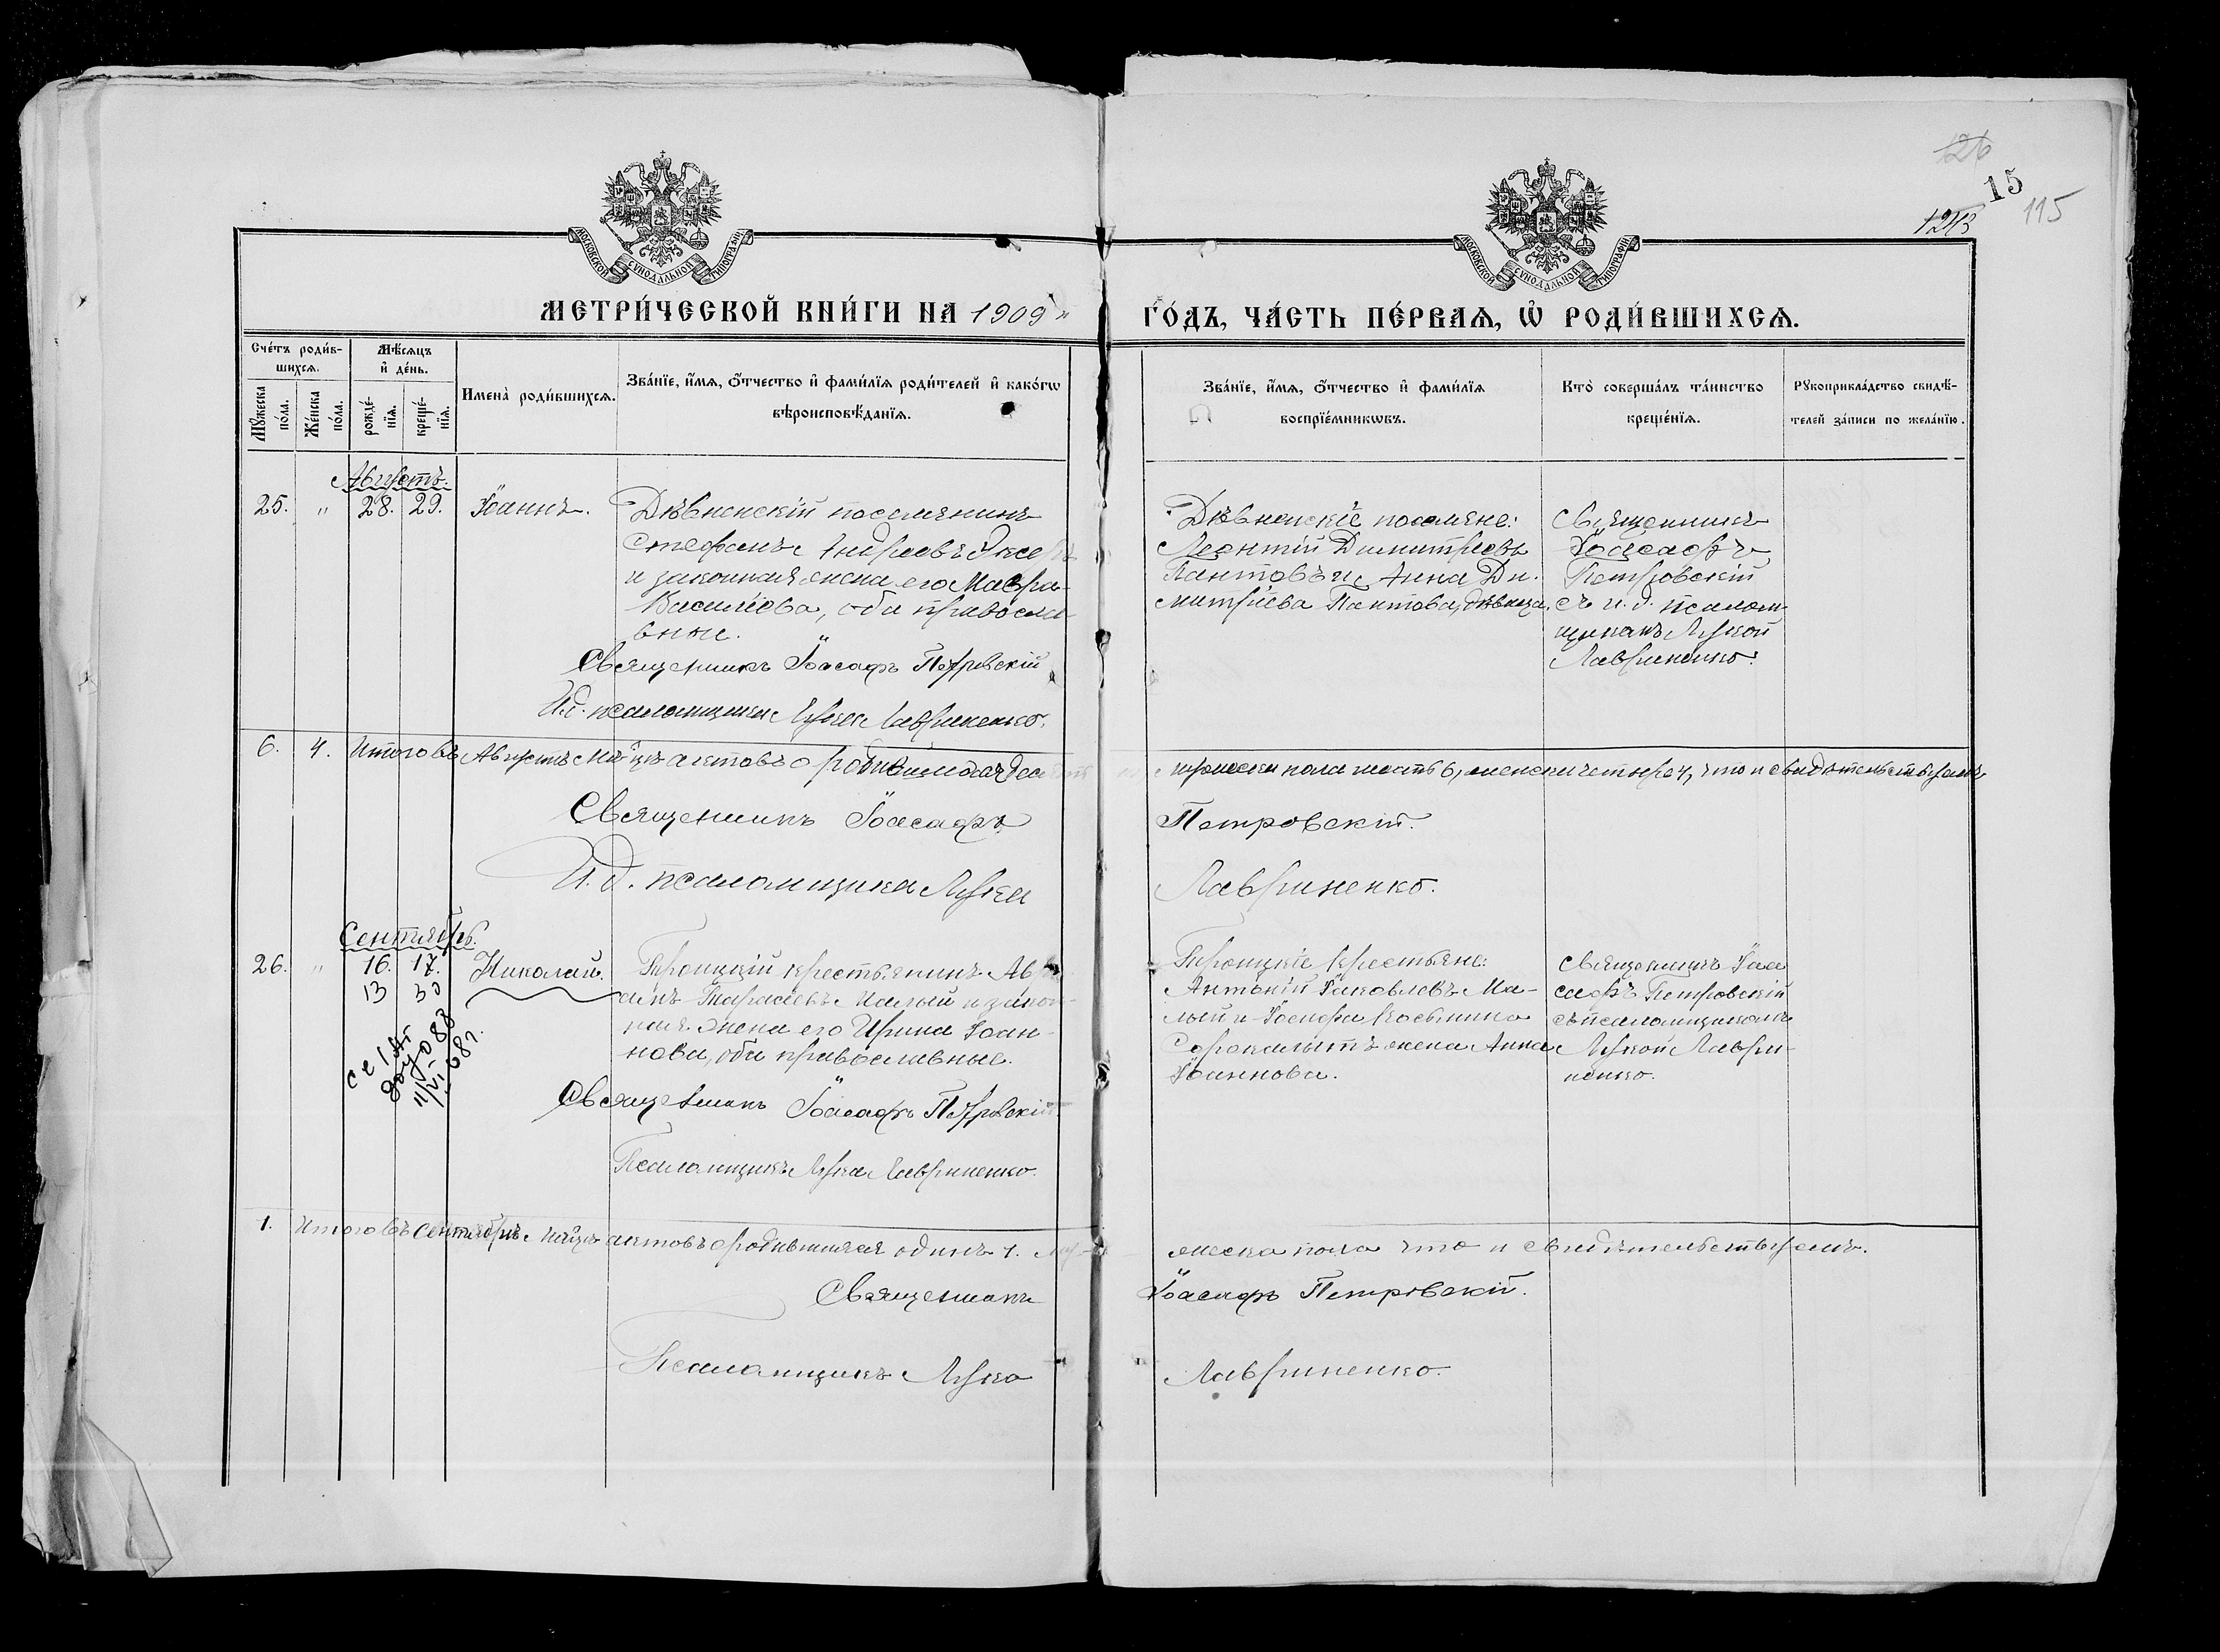 126
15
1243
115
МОСКОВСКОЙ СѴНОДАЛЬНОЙ ТИПОГРАФІИ
МОСКОВСКОЙ СѴНОДАЛЬНОЙ ТИПОГРАФІИ
МЕТРИ́ЧЕСКОЙ КНИ́ГИ НА 1909
ГО́ДЪ, ЧА́СТЬ ПЕ́РВАѦ, Ѡ РОДИ́ВШИХСѦ.
Сче́тъ роди́в-
шихсѧ.
Мѣ́сѧцъ
и҆ де́нь.
Мꙋ́жеска по́ла.
Же́нска по́ла.
рожде́-
нїѧ.
креще́-
нїѧ.
Имена̀ роди́вшихсѧ.
Зва́нїе, и҆́мѧ, ѻ҆́тчество и҆ фами́лїѧ роди́телей и҆ како́гѡ
вѣроисповѣ́данїѧ.
Зва́нїе, и҆́мѧ, ѻ҆́тчество и҆ фами́лїѧ
воспрїе́мникѡвъ.
Кто̀ соверша́лъ та́инство
креще́нїѧ.
Рꙋкоприкла́дство свидѣ́-
телей за́писи по жела́нїю.
Августъ.
25. " 28. 29. Іоаннъ.
Дѣвненскій поселянинъ
Стефанъ Андреевъ
и законная жена его Мавра
Васильева, оба православ-
вные.
Священникъ Іоасафъ Петровскій
И.д. псаломщика Лука Лавриненко.
Дѣвненскіе поселяне:
Леонтій Димитріевъ
Пантовъ и Анна Ди-
митріева Пантова, дѣвица.
Священникъ
Іоасафъ
Петровскій
съ и. д. псалом-
щикомъ Лукой
Лавриненко.
6. 4. Итого въ Августѣ м-цѣ актовъ о родившихся
мужеска пола шесть 6, женска четыре 4, что и свидѣтельствуемъ
Священникъ Іоасафъ
Петровскій.
И. д. псаломщика Лука
Лавриненко.
Сентябрь.
26. " 16. 17. Николай.
13 30
Троицкій крестьянинъ
Тарасіевъ Малый и закон-
ная жена его Ирина Іоан-
нова, оба православные.
Священникъ Іоасафъ Петровскій
Псаломщикъ Лука Лавриненко.
Троицкіе крестьяне:
Антоній Іаковлевъ Ма-
лый и Іосифа Косьмина
жена Анна
Іоаннова.
Священникъ Іоа
сафъ Петровскій
съ псаломщикомъ
Лукой Лаври-
ненко.
1. Итого въ Сентябрѣ м-цѣ актовъ о родившихся одинъ 1. му-
жеска пола что и свидѣтельствуемъ.
Священникъ
Іоасафъ Петровскій.
Псаломщикъ Лука
Лавриненко.